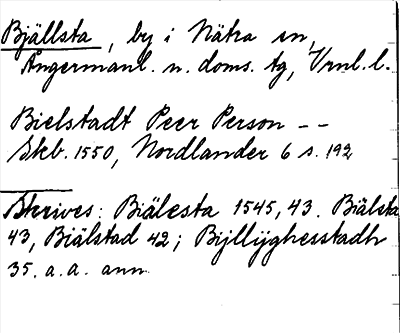 Bjällsta, by i Nätra sn,
Ångermanl. n. doms. tg, Vrnl. l.
Bielstadt Peer Person --
Skb. 1550, Nordlander 6 s. 192
Skrives: Biälesta 1545, 43. Biälsta
43, Biälstad 42; Bijllijghesstadh
35. a. a. anm